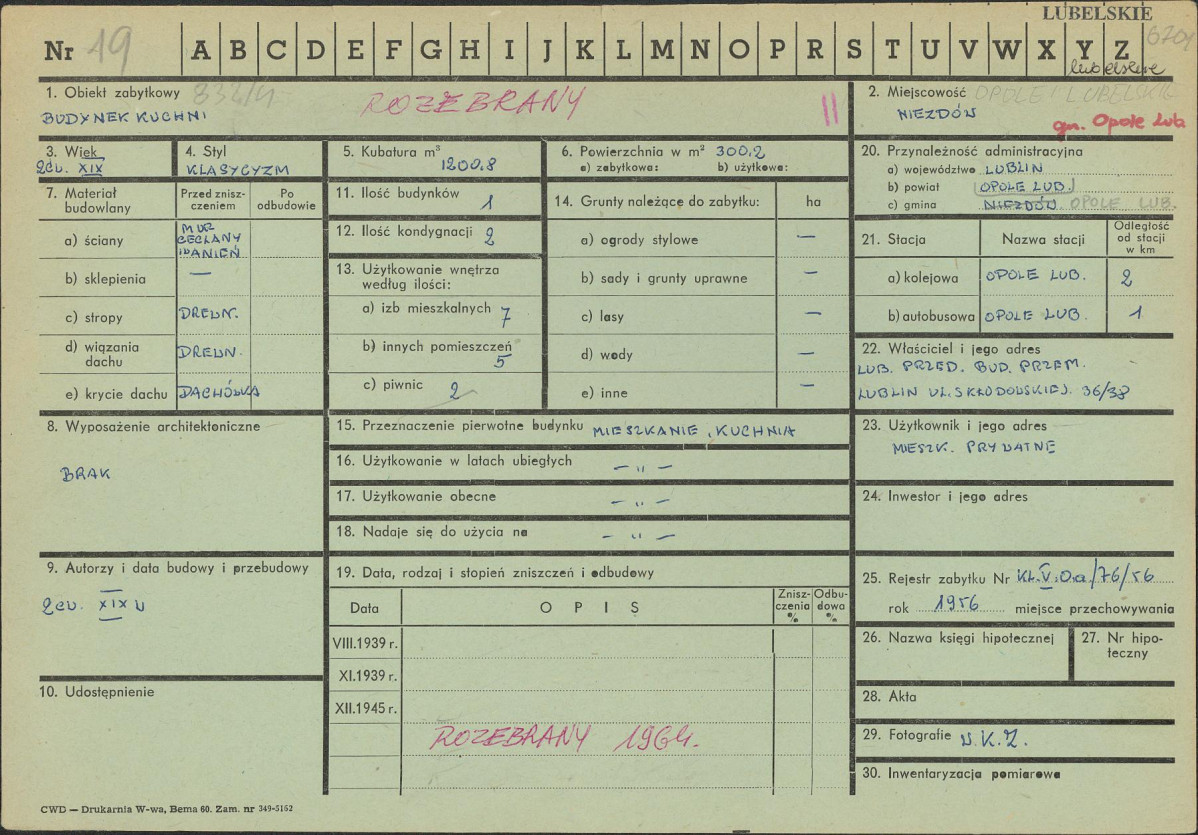 LUBELSKIE
Nr 19 A B C D E F G H I J K L M N O P R S T U V W X Y Z
lubelskie
1. Obiekt zabytkowy 832/11
ROZEBRANY II
BUDYNEK KUCHNI
2. Miejscowość OPOLE LUBELSKIE
NIEZDÓW
gm. Opole Lub
3. Wiek
2ćw. XIX
4. Styl
KLASYCYZM
5. Kubatura m³
1200,8
6. Powierzchnia w m² 300,2
a) zabytkowa: b) użytkowa:
7. Materiał budowlany
Przed znisz-
czeniem
Po
odbudowie
a) ściany MUR CEGLANY I KAMIEŃ
b) sklepienia —
c) stropy DREWN.
d) wiązania
dachu DREWN.
e) krycie dachu DACHÓWKA
8. Wyposażenie architektoniczne
BRAK
9. Autorzy i data budowy i przebudowy
2ćw. XIX w
10. Udostępnienie
11. Ilość budynków 1
12. Ilość kondygnacji 2
13. Użytkowanie wnętrza
według ilości:
a) izb mieszkalnych 7
b) innych pomieszczeń 5
c) piwnic 2
14. Grunty należące do zabytku: ha
a) ogrody stylowe —
b) sady i grunty uprawne —
c) lasy —
d) wody —
e) inne —
15. Przeznaczenie pierwotne budynku MIESZKANIE, KUCHNIA
16. Użytkowanie w latach ubiegłych — " —
17. Użytkowanie obecne — " —
18. Nadaje się do użycia na — " —
19. Data, rodzaj i stopień zniszczeń i odbudowy
Data OPIS
Znisz-
czenia
%
Odbu-
dowa
%
VIII.1939 r.
XI.1939 r.
XII.1945 r.
ROZEBRANY 1964.
20. Przynależność administracyjna
a) województwo LUBLIN
b) powiat OPOLE LUB.
c) gmina NIEZDÓW OPOLE LUB.
21. Stacja Nazwa stacji
Odległość
od stacji
w km
a) kolejowa OPOLE LUB. 2
b) autobusowa OPOLE LUB. 1
22. Właściciel i jego adres
LUB. PRZED. BUD. PRZEM.
LUBLIN UL. SKŁODOWSKIEJ. 36/38
23. Użytkownik i jego adres
MIESZK. PRYWATNE
24. Inwestor i jego adres
25. Rejestr zabytku Nr Kl.V.Oa/76/56
rok 1956 miejsce przechowywania
26. Nazwa księgi hipotecznej
27. Nr hipo-
teczny
28. Akta
29. Fotografie W.K.Z.
30. Inwentaryzacja pomiarowa
CWD — Drukarnia W-wa, Bema 60. Zam. nr 349-5162